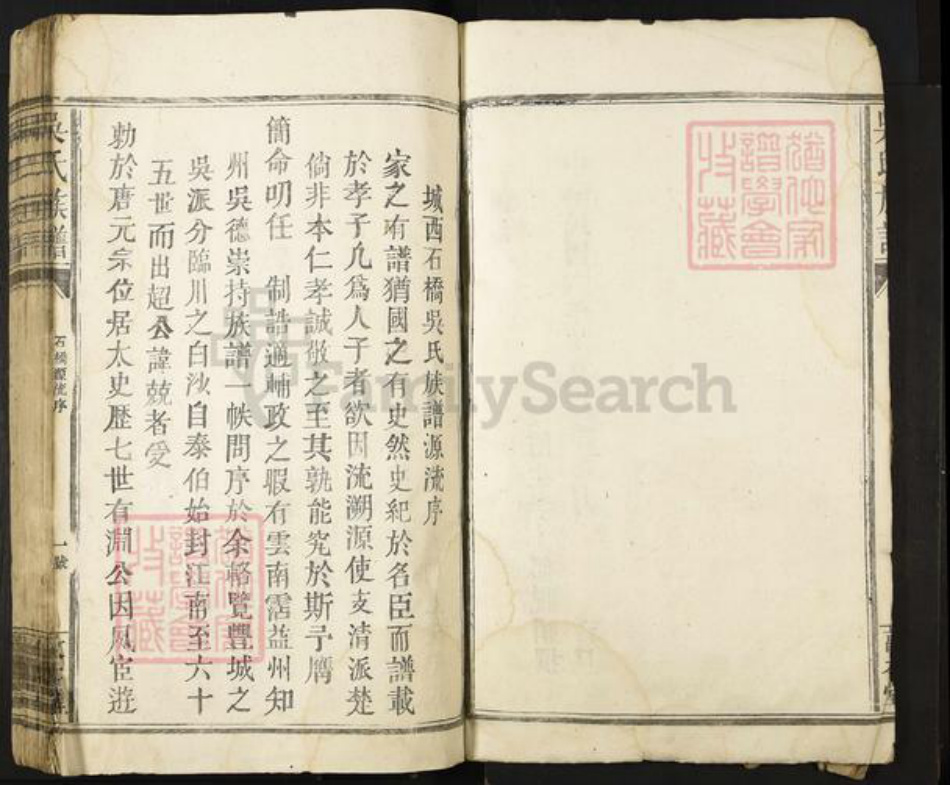 城西石橋吳氏族譜源流序
家之有譜猶國之有史然史紀於名臣而譜載
於孝子凡爲人子者欲因流溯源使支清派楚
倘非本仁孝誠敬之至其孰能究於斯予膺
簡命叨任　制誥適輔政之暇有雲南霑益州知
州吳德崇持族譜一帙問序於余略覽豐城之
吳派分臨川之白沙自泰伯始封江南至六十
五世而出超公諱兢者受
勅於唐元宗位居太史歷七世有淵公因夙宦遊
吳氏族譜
石橋源流序
一號
FamilySearch